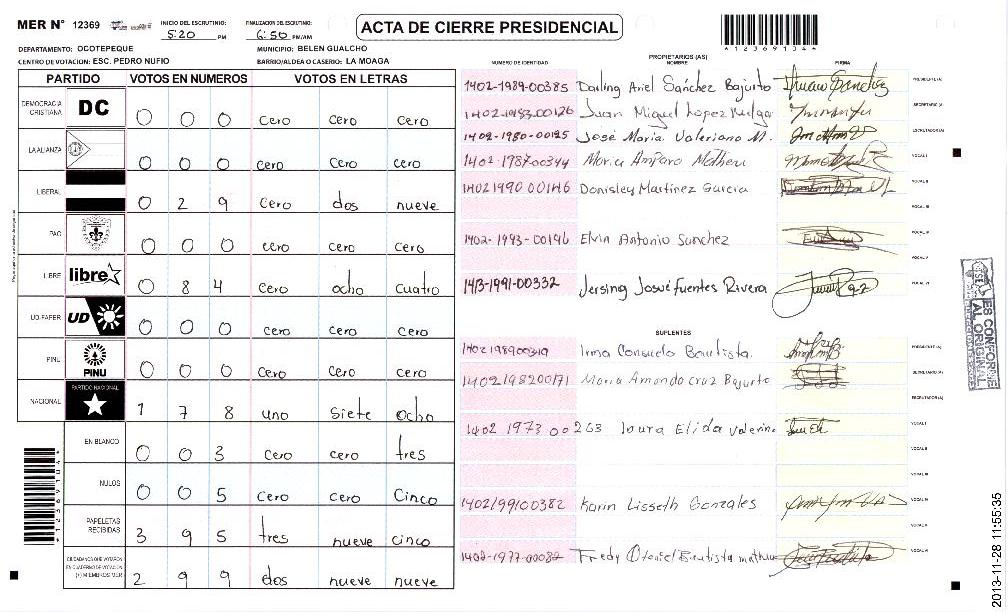 MER N° 12369
INICIO DEL ESCRUTINIO: 5:20 PM
FINALIZACION DEL ESCRUTINIO: 6:50 PM/AM
ACTA DE CIERRE PRESIDENCIAL
*123691041*
DEPARTAMENTO: OCOTEPEQUE
MUNICIPIO: BELEN GUALCHO
CENTRO DE VOTACION: ESC. PEDRO NUFIO
BARRIO/ALDEA O CASERIO: LA MOAGA
PARTIDO VOTOS EN NUMEROS VOTOS EN LETRAS
DEMOCRACIA CRISTIANA DC 0 0 0 cero cero cero
LA ALIANZA 0 0 0 cero cero cero
LIBERAL 0 2 9 cero dos nueve
PAC 0 0 0 cero cero cero
LIBRE libre 0 8 4 cero ocho cuatro
UD-FAPER UD 0 0 0 cero cero cero
PINU PINU 0 0 0 cero cero cero
NACIONAL PARTIDO NACIONAL 1 7 8 uno siete ocho
EN BLANCO 0 0 3 cero cero tres
NULOS 0 0 5 cero cero cinco
PAPELETAS RECIBIDAS 3 9 5 tres nueve cinco
CIUDADANOS QUE VOTARON EN CUADERNO DE VOTACION (+) MIEMBROS MER 2 9 9 dos nueve nueve
PROPIETARIOS (AS)
NUMERO DE IDENTIDAD NOMBRE FIRMA
1402-1989-00385 Darling Ariel Sánchez Bajurto PRESIDENTE (A)
1402-1983-00126 Juan Miguel Lopez SECRETARIO (A)
1402-1980-00125 José Maria Valeriano M. ESCRUTADOR (A)
1402-1987-00344 Maria Amparo Matheu VOCAL I
1402 1990 00146 Donisley Martinez Garcia VOCAL II
VOCAL III
1402-1993-00196 Elvin Antonio Sanchez VOCAL IV
VOCAL V
1413-1991-00332 Jersing Josué Fuentes Rivera VOCAL VI
SUPLENTES
1402198900319 Irma Consuelo Bautista. PRESIDENTE (A)
1402198200171 Maria Amanda cruz Bajurto SECRETARIO (A)
ESCRUTADOR (A)
1402 1973 00263 laura Elida valerino VOCAL I
VOCAL II
VOCAL III
1402199100382 Karin Lisseth Gonzales VOCAL IV
VOCAL V
1402-1977-00082 Fredy Otoniel Bautista matheu VOCAL VI
ES CONFORME
AL ORIGINAL
2013-11-28 11:55:35